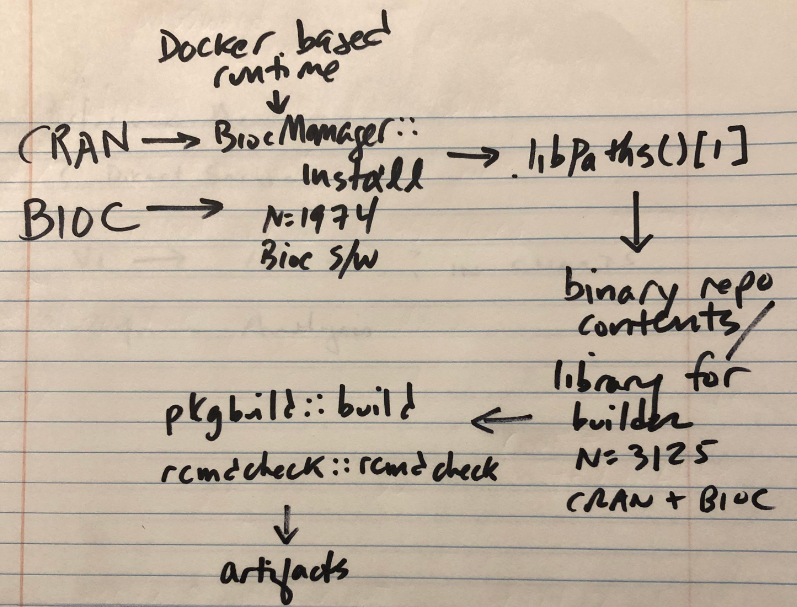 Docker based
runtime
CRAN → BiocManager::
Install → .libPaths()[1]
BIOC →
N=1974
Bioc S/W
binary repo
contents /
library for
builder
N=3125
CRAN + BIOC
pkgbuild::build
rcmdcheck::rcmdcheck
artifacts